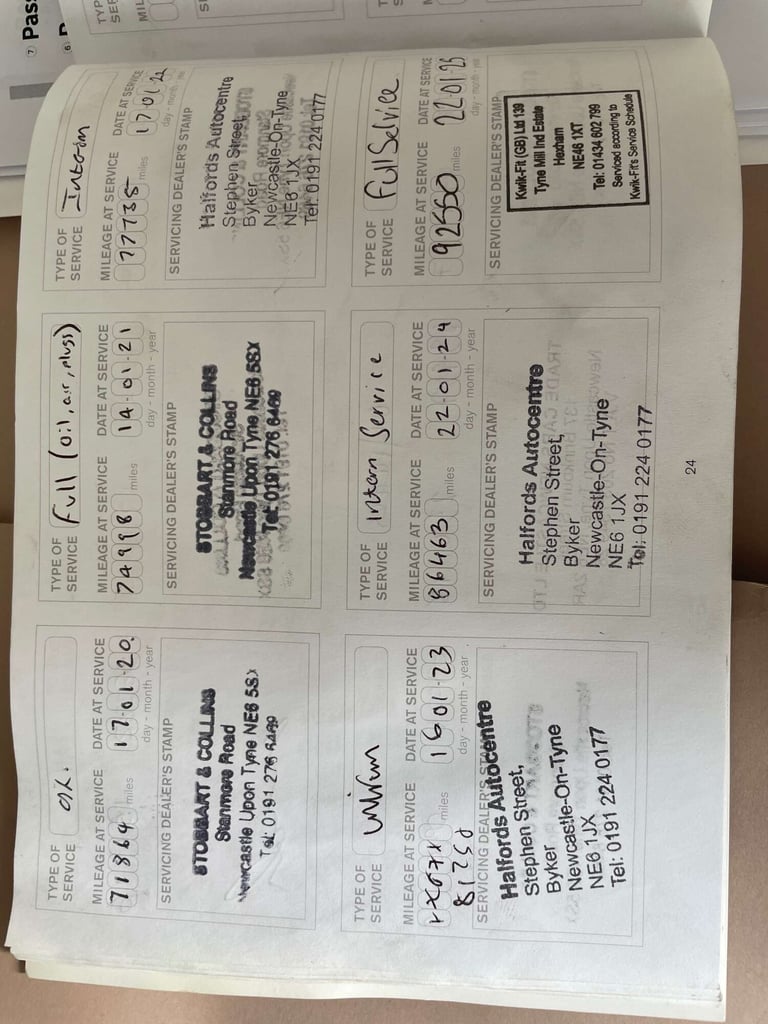 TYPE OF SERVICE OIL.
MILEAGE AT SERVICE DATE AT SERVICE
71364 miles 17-01-20.
day - month - year
SERVICING DEALER'S STAMP
STOBBART & COLLINS
Stanmore Road
Newcastle Upon Tyne NE6 5SX
Tel: 0191 276 6469
TYPE OF SERVICE Full (oil, air, plugs)
MILEAGE AT SERVICE DATE AT SERVICE
74998 miles 14-01-21
day - month - year
SERVICING DEALER'S STAMP
STOBBART & COLLINS
Stanmore Road
Newcastle Upon Tyne NE6 5SX
Tel: 0191 276 6469
TYPE OF SERVICE Interim
MILEAGE AT SERVICE DATE AT SERVICE
77735 miles 17-01-22
day - month - year
SERVICING DEALER'S STAMP
Halfords Autocentre
Stephen Street,
Byker
Newcastle-On-Tyne
NE6 1JX
Tel: 0191 224 0177
TYPE OF SERVICE
MILEAGE AT SERVICE DATE AT SERVICE
miles 16-01-23
81750
day - month - year
SERVICING DEALER'S STAMP
Halfords Autocentre
Stephen Street,
Byker
Newcastle-On-Tyne
NE6 1JX
Tel: 0191 224 0177
TYPE OF SERVICE Interim Service
MILEAGE AT SERVICE DATE AT SERVICE
86463 miles 22-01-24
day - month - year
SERVICING DEALER'S STAMP
Halfords Autocentre
Stephen Street,
Byker
Newcastle-On-Tyne
NE6 1JX
Tel: 0191 224 0177
TYPE OF SERVICE Full Service
MILEAGE AT SERVICE DATE AT SERVICE
92550 miles 22-01-25
day - month - year
SERVICING DEALER'S STAMP
Kwik-Fit (GB) Ltd 139
Tyne Mill Ind Estate
Hexham
NE46 1XT
Tel: 01434 602 799
Serviced according to
Kwik-Fit's Service Schedule
24
7 Pass
6